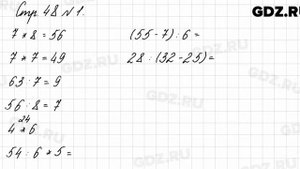 GDZ.RU
Стр. 48 №1.
7 * 8 = 56
7 * 7 = 49
63 : 7 = 9
56 : 8 = 7
24
4 * 6
54 : 6 * 5 =
(55-7) : 6 =
28 : (32-25) =